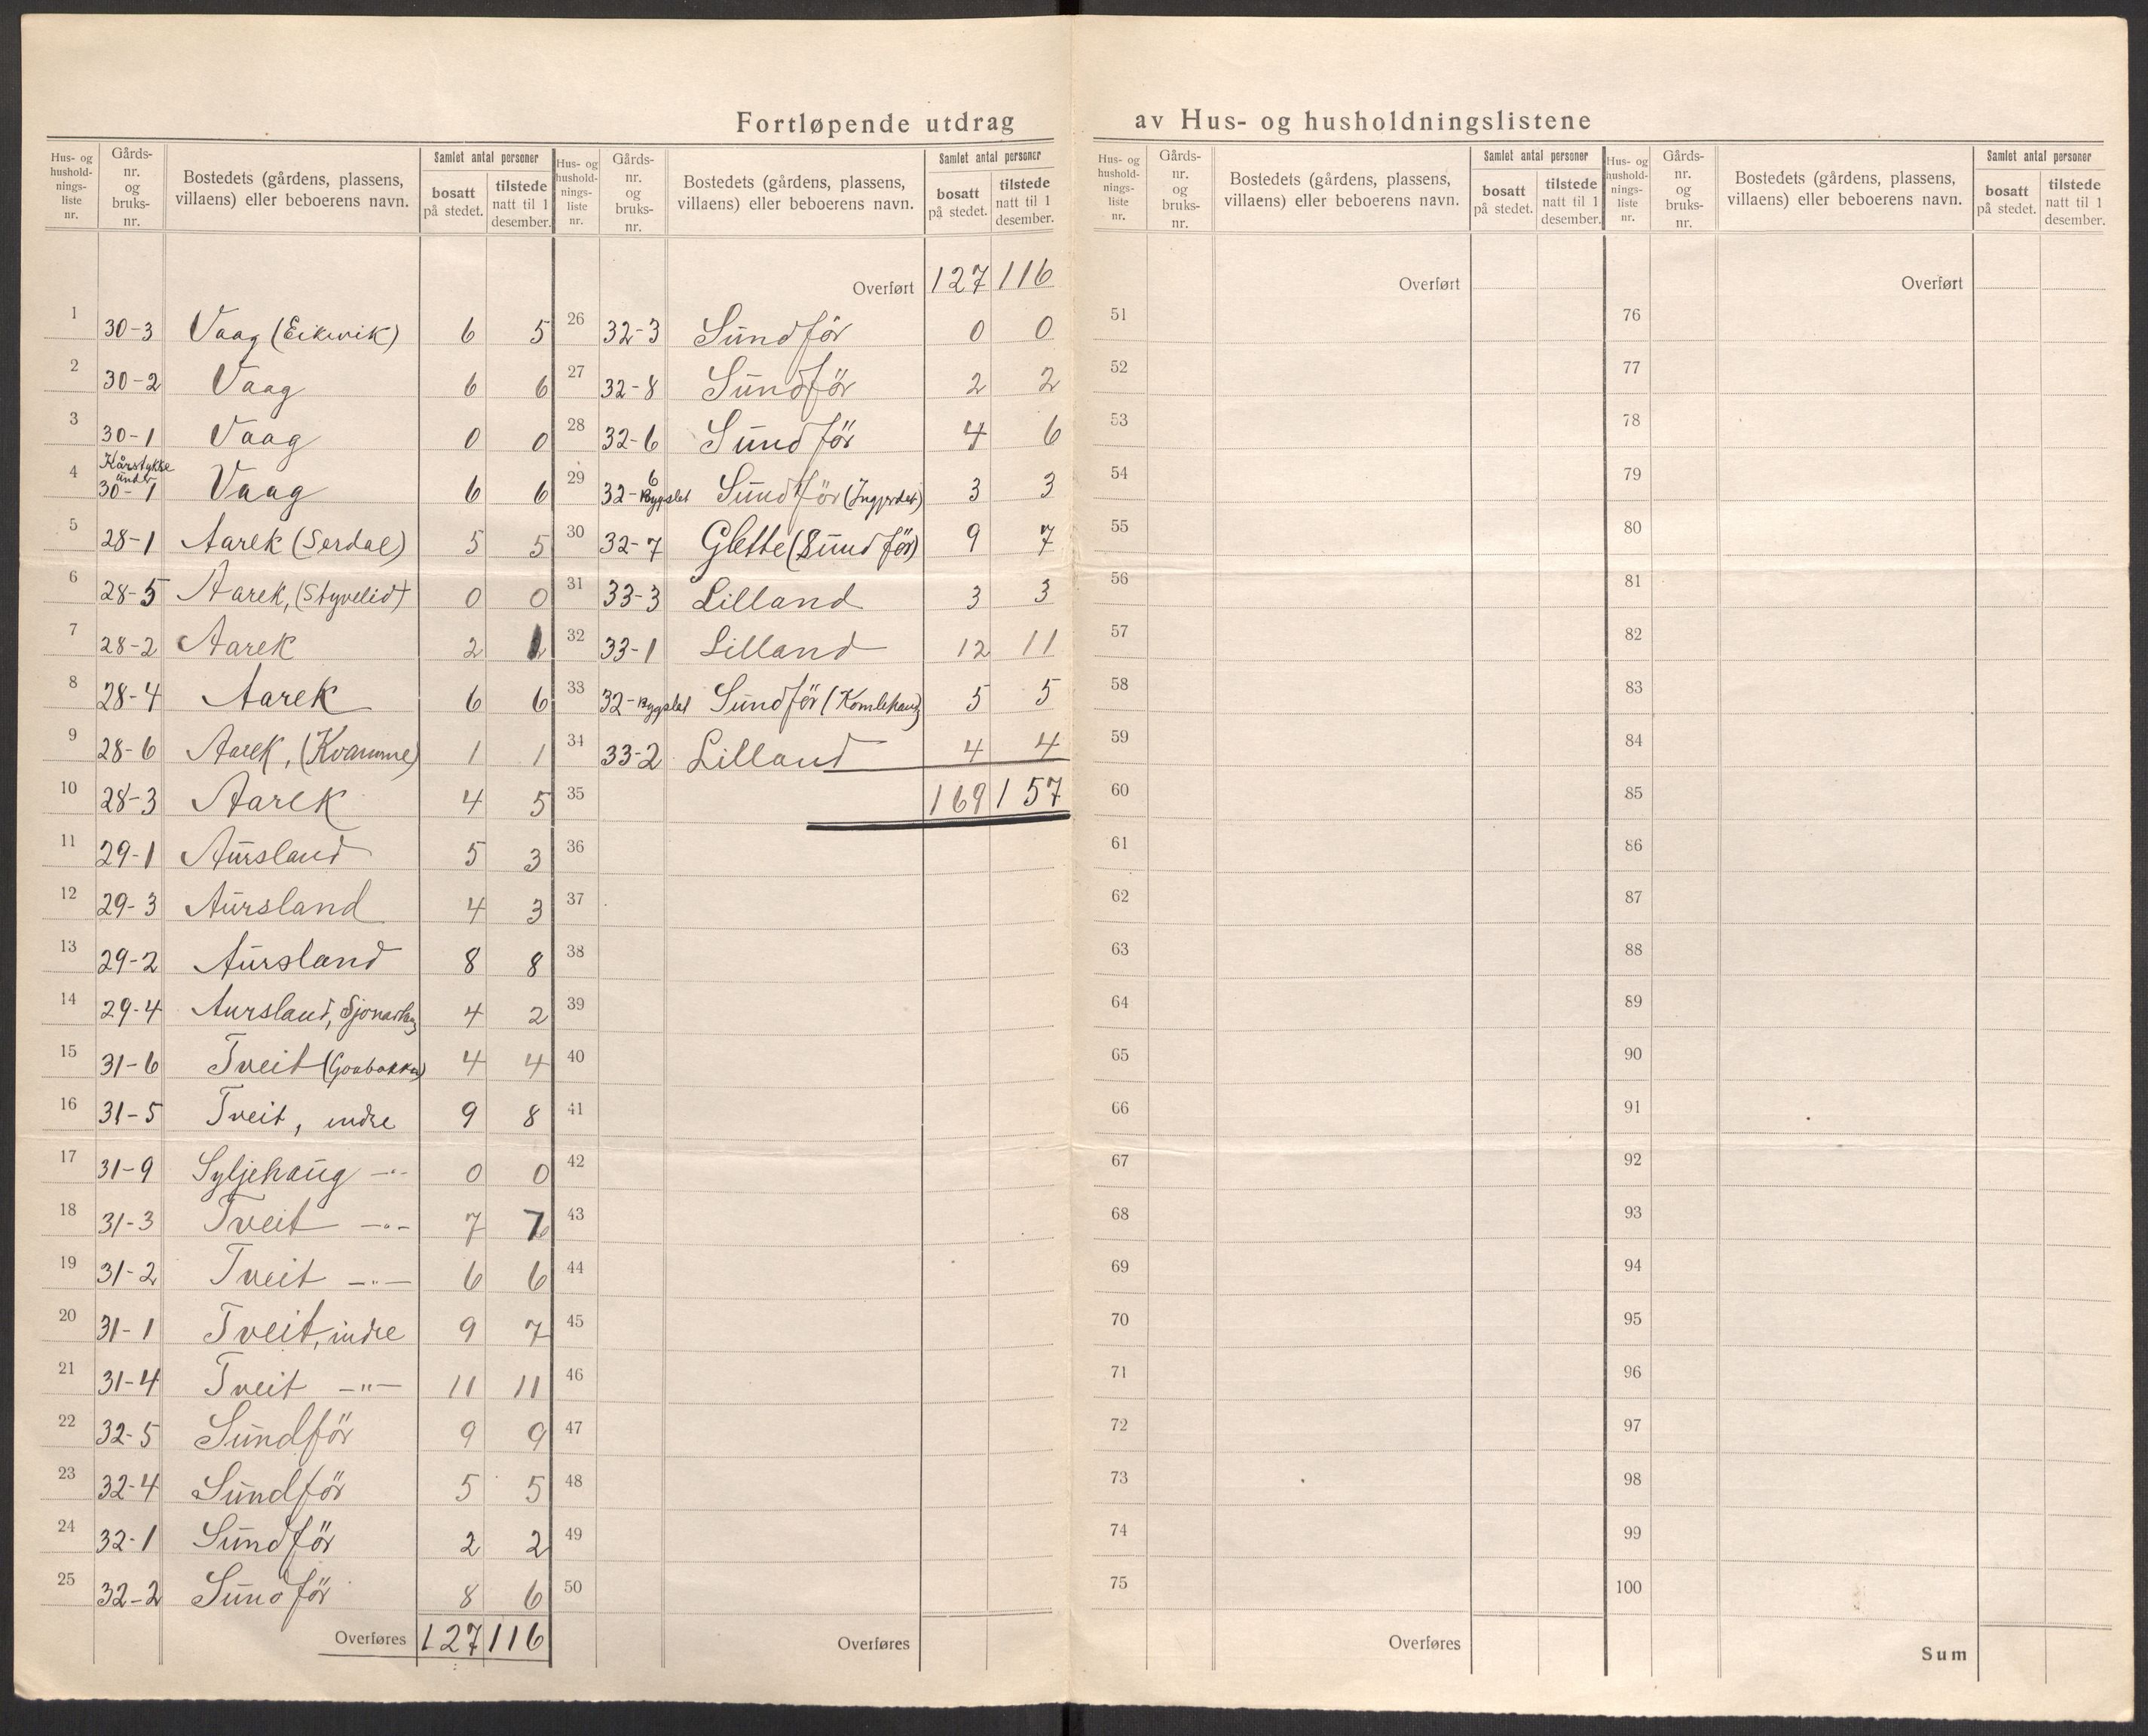 Fortløpende utdrag av Hus- og husholdningslistene
Hus- og hushold-nings-liste nr. Gårds-nr. og bruks-nr. Bostedets (gårdens, plassens, villaens) eller beboerens navn. Samlet antal personer bosatt på stedet. tilstede natt til 1 desember.
1 30-3 Vaag (Eikevik) 6 5
2 30-2 Vaag 6 6
3 30-1 Vaag 0 0
4 Kårstykke under 30-1 Vaag 6 6
5 28-1 Aarek (Serdal) 5 5
6 28-5 Aarek, (Styvelid) 0 0
7 28-2 Aarek 2 1
8 28-4 Aarek 6 6
9 28-6 Aarek, (Kvamme) 1 1
10 28-3 Aarek 4 5
11 29-1 Aursland 5 3
12 29-3 Aursland 4 3
13 29-2 Aursland 8 8
14 29-4 Aursland, 4 2
15 31-6 Tveit 4 4
16 31-5 Tveit, indre 9 8
17 31-9 Syljehaug -"- 0 0
18 31-3 Tveit -"- 7 7
19 31-2 Tveit -"- 6 6
20 31-1 Tveit, indre 9 7
21 31-4 Tveit -"- 11 11
22 32-5 Sundför 9 9
23 32-4 Sundför 5 5
24 32-1 Sundför 2 2
25 32-2 Sundför 8 6
Overføres 127 116
Hus- og hushold-nings-liste nr. Gårds-nr. og bruks-nr. Bostedets (gårdens, plassens, villaens) eller beboerens navn. Samlet antal personer bosatt på stedet. tilstede natt til 1 desember.
Overført 127 116
26 32-3 Sundför 0 0
27 32-8 Sundför 2 2
28 32-6 Sundför 4 6
29 32-6 Bygslet Sundför 3 3
30 32-7 Glette (Sundför) 9 7
31 33-3 Lilland 3 3
32 33-1 Lilland 12 11
33 32-Bygslet Sundför (Komlehaug) 5 5
34 33-2 Lilland 4 4
35 169 157
36
37
38
39
40
41
42
43
44
45
46
47
48
49
50
Overføres
Hus- og hushold-nings-liste nr. Gårds-nr. og bruks-nr. Bostedets (gårdens, plassens, villaens) eller beboerens navn. Samlet antal personer bosatt på stedet. tilstede natt til 1 desember.
Overført
51
52
53
54
55
56
57
58
59
60
61
62
63
64
65
66
67
68
69
70
71
72
73
74
75
Overføres
Hus- og hushold-nings-liste nr. Gårds-nr. og bruks-nr. Bostedets (gårdens, plassens, villaens) eller beboerens navn. Samlet antal personer bosatt på stedet. tilstede natt til 1 desember.
Overført
76
77
78
79
80
81
82
83
84
85
86
87
88
89
90
91
92
93
94
95
96
97
98
99
100
Sum